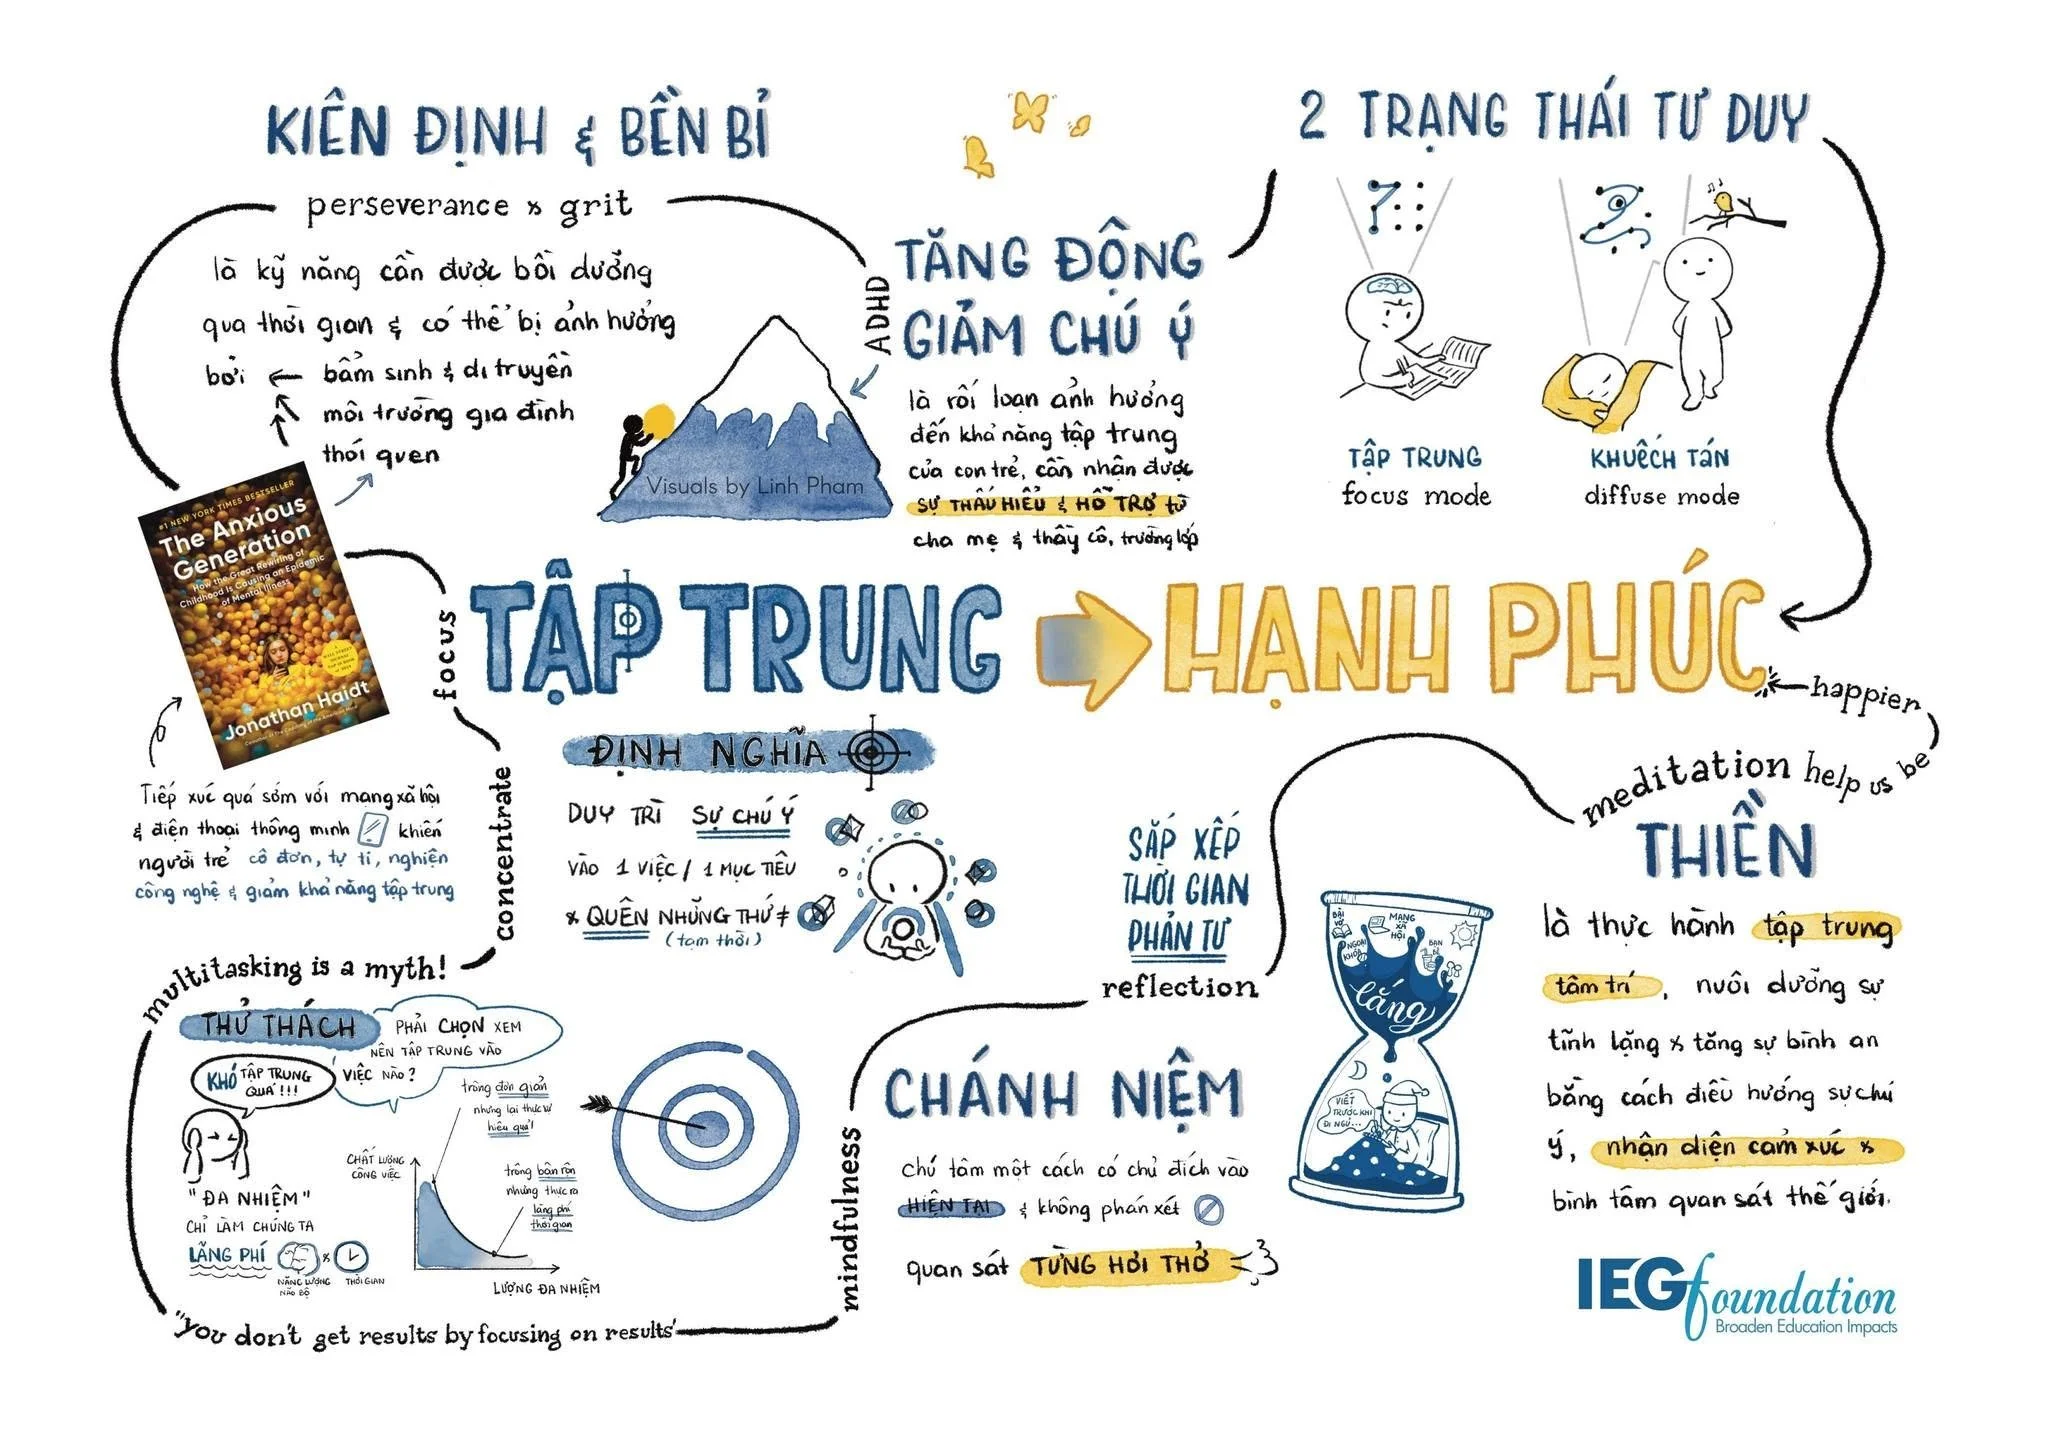 KIÊN ĐỊNH & BỀN BỈ
perseverance & grit
là kỹ năng cần được bồi dưỡng
qua thời gian & có thể bị ảnh hưởng
bởi ← bẩm sinh & di truyền
môi trường gia đình
thói quen
#1 NEW YORK TIMES BESTSELLER
The Anxious
Generation
How the Great Rewiring of
Childhood Is Causing an Epidemic
of Mental Illness
Jonathan Haidt
Tiếp xúc quá sớm với mạng xã hội
& điện thoại thông minh khiến
người trẻ cô đơn, tự ti, nghiện
công nghệ & giảm khả năng tập trung
Visuals by Linh Pham
ADHD
TĂNG ĐỘNG
GIẢM CHÚ Ý
là rối loạn ảnh hưởng
đến khả năng tập trung
của con trẻ, cần nhận được
SỰ THẤU HIỂU & HỖ TRỢ từ
cha mẹ & thầy cô, trường lớp
2 TRẠNG THÁI TƯ DUY
TẬP TRUNG
focus mode
KHUẾCH TÁN
diffuse mode
TẬP TRUNG
HẠNH PHÚC
focus
concentrate
ĐỊNH NGHĨA
DUY TRÌ SỰ CHÚ Ý
VÀO 1 VIỆC / 1 MỤC TIÊU
& QUÊN NHỮNG THỨ ≠
(tạm thời)
multitasking is a myth!
THỬ THÁCH
PHẢI CHỌN XEM
NÊN TẬP TRUNG VÀO
VIỆC NÀO?
KHÓ TẬP TRUNG
QUÁ!!!
"ĐA NHIỆM"
CHỈ LÀM CHÚNG TA
LÃNG PHÍ
NĂNG LƯỢNG
NÃO BỘ
THỜI GIAN
CHẤT LƯỢNG
CÔNG VIỆC
trông đơn giản
nhưng lại thực sự
hiệu quả!
trông bận rộn
nhưng thực ra
lãng phí
thời gian
LƯỢNG ĐA NHIỆM
"you don't get results by focusing on results"
mindfulness
CHÁNH NIỆM
chú tâm một cách có chủ đích vào
HIỆN TẠI & không phán xét
quan sát TỪNG HƠI THỞ
SẮP XẾP
THỜI GIAN
PHẢN TƯ
reflection
BÀI
VỞ
MẠNG
XÃ
HỘI
NGOẠI
KHÓA
BẠN
BÈ
lắng
VIẾT
TRƯỚC KHI
ĐI NGỦ...
meditation help us be
happier
THIỀN
là thực hành tập trung
tâm trí, nuôi dưỡng sự
tĩnh lặng & tăng sự bình an
bằng cách điều hướng sự chú
ý, nhận diện cảm xúc &
bình tâm quan sát thế giới.
IEG foundation
Broaden Education Impacts